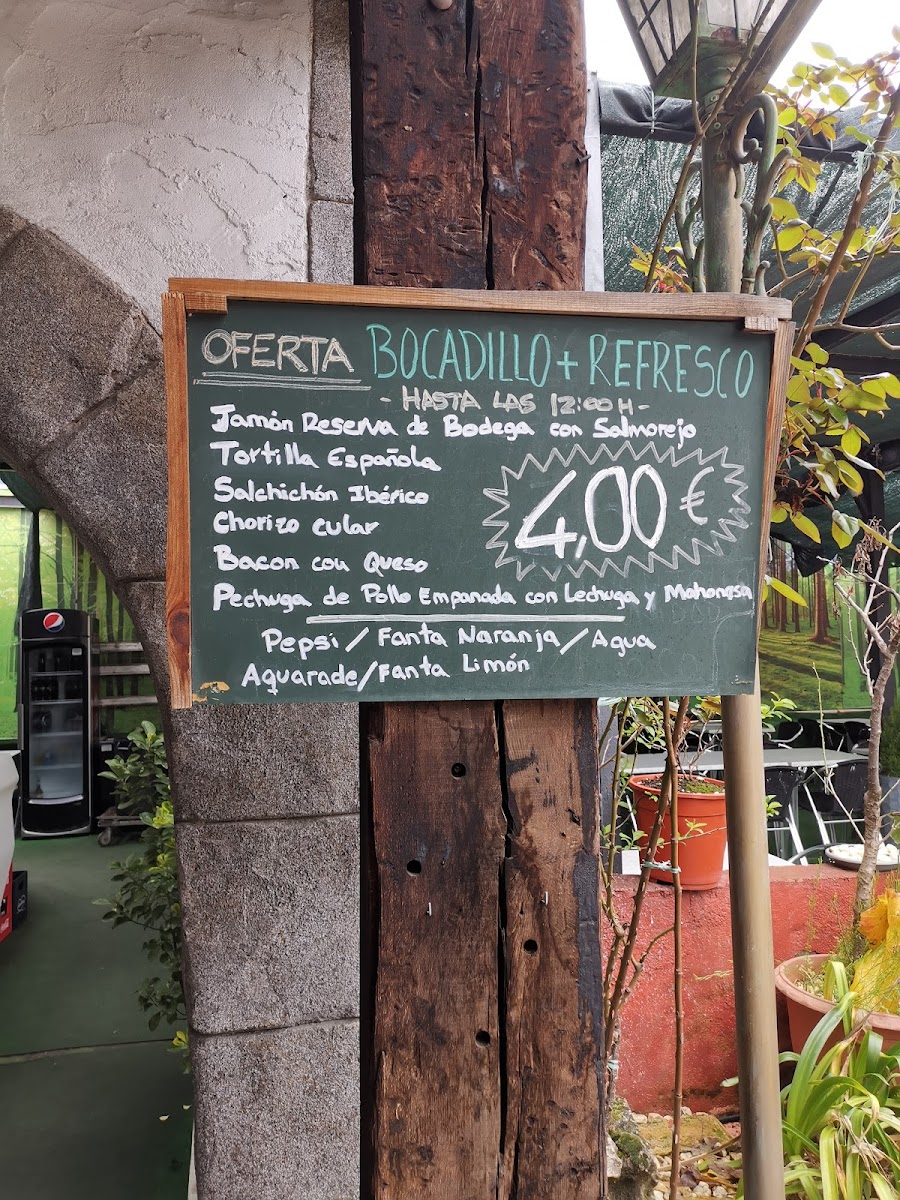 OFERTA BOCADILLO + REFRESCO
- HASTA LAS 12:00 H -
Jamón Reserva de Bodega con Salmorejo
Tortilla Española
Salchichón Ibérico
Chorizo Cular
4,00 €
Bacon con Queso
Pechuga de Pollo Empanada con Lechuga y Mahonesa
Pepsi / Fanta Naranja / Agua
Aquarade/Fanta Limón